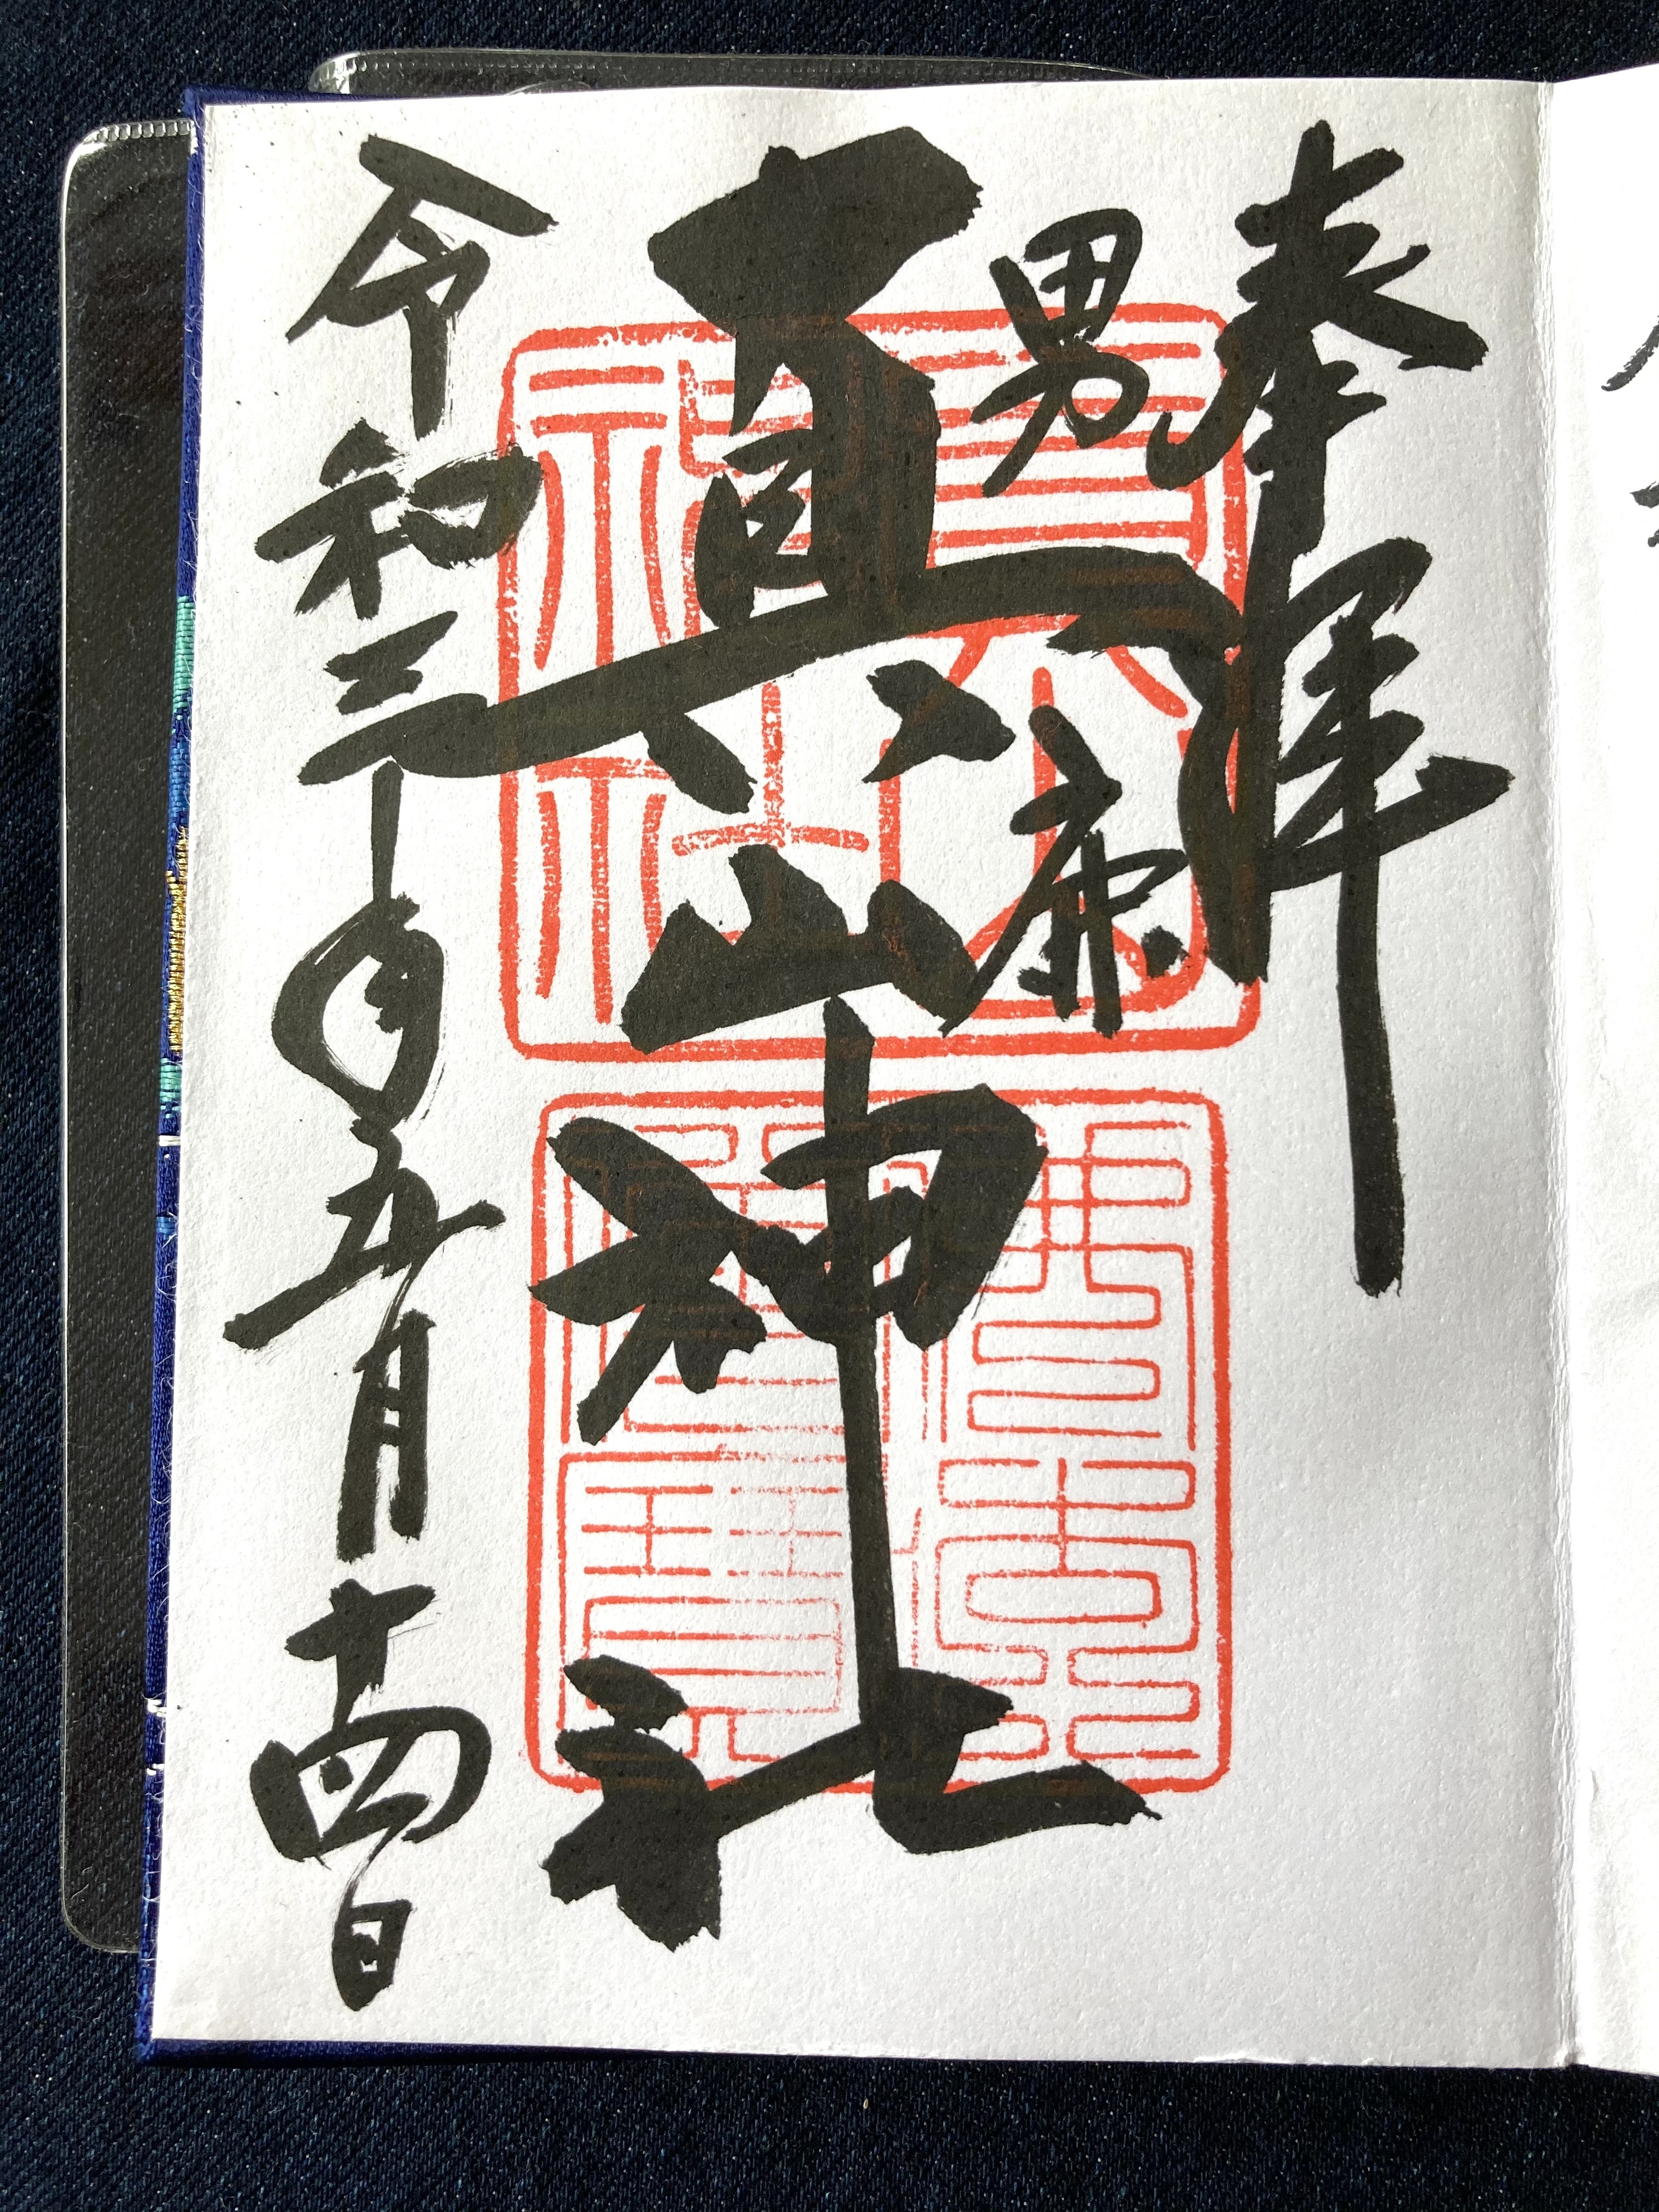 奉拝
男鹿
真山神社
令和三年五月十四日
真山
神社